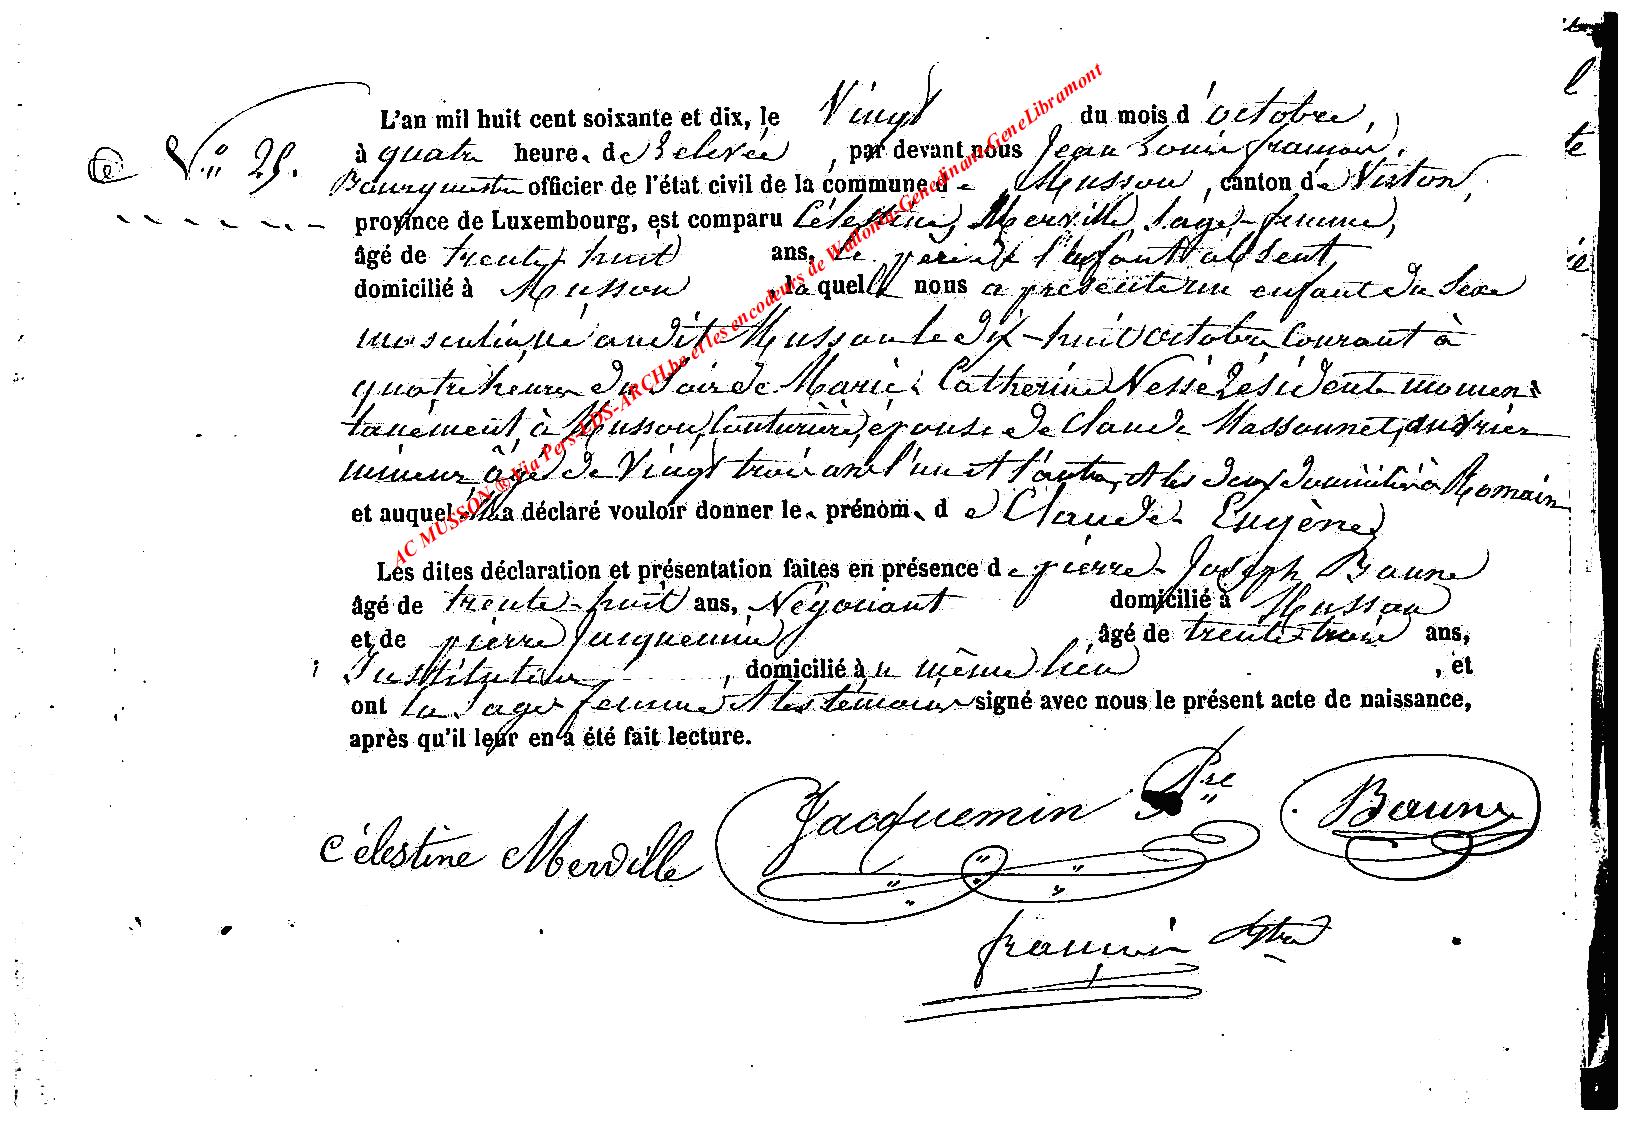 L'an mil huit cent soixante et dix, le Vingt du mois d'octobre,
N.° 25. à quatre heures de relevée, par devant nous Jean Louis françois,
Bourgmestre officier de l'état civil de la commune de Musson, canton de Virton,
province de Luxembourg, est comparu Célestine Merville, sage-femme,
âgé de trente-huit ans, le père de l'enfant absent,
domicilié à Musson, laquelle nous a présenté un enfant du sexe
masculin, né audit Musson le dix-huit octobre courant à
quatre heures du soir de Marie-Catherine Nesse résidente momen-
tanément à Musson, Couturière, épouse de Claude Massonnet, ouvrier
mineur, âgé de Vingt trois ans l'un et l'autre, et les deux domiciliés à Romain
et auquel elle a déclaré vouloir donner les prénoms de Claude Eugène
Les dites déclaration et présentation faites en présence de pierre-Joseph Baune
âgé de trente-huit ans, Négociant domicilié à Musson
et de pierre Jacquemin âgé de trente trois ans,
Instituteur, domicilié au même lieu, et
ont la sage-femme et les témoins signé avec nous le présent acte de naissance,
après qu'il leur en a été fait lecture.
Célestine Merville Jacquemin Pre Baune
françois
AC MUSSON ® Via Pers-LDS-ARCH.be et les encodeurs de Wallonia-Genedinant-GeneLibramont